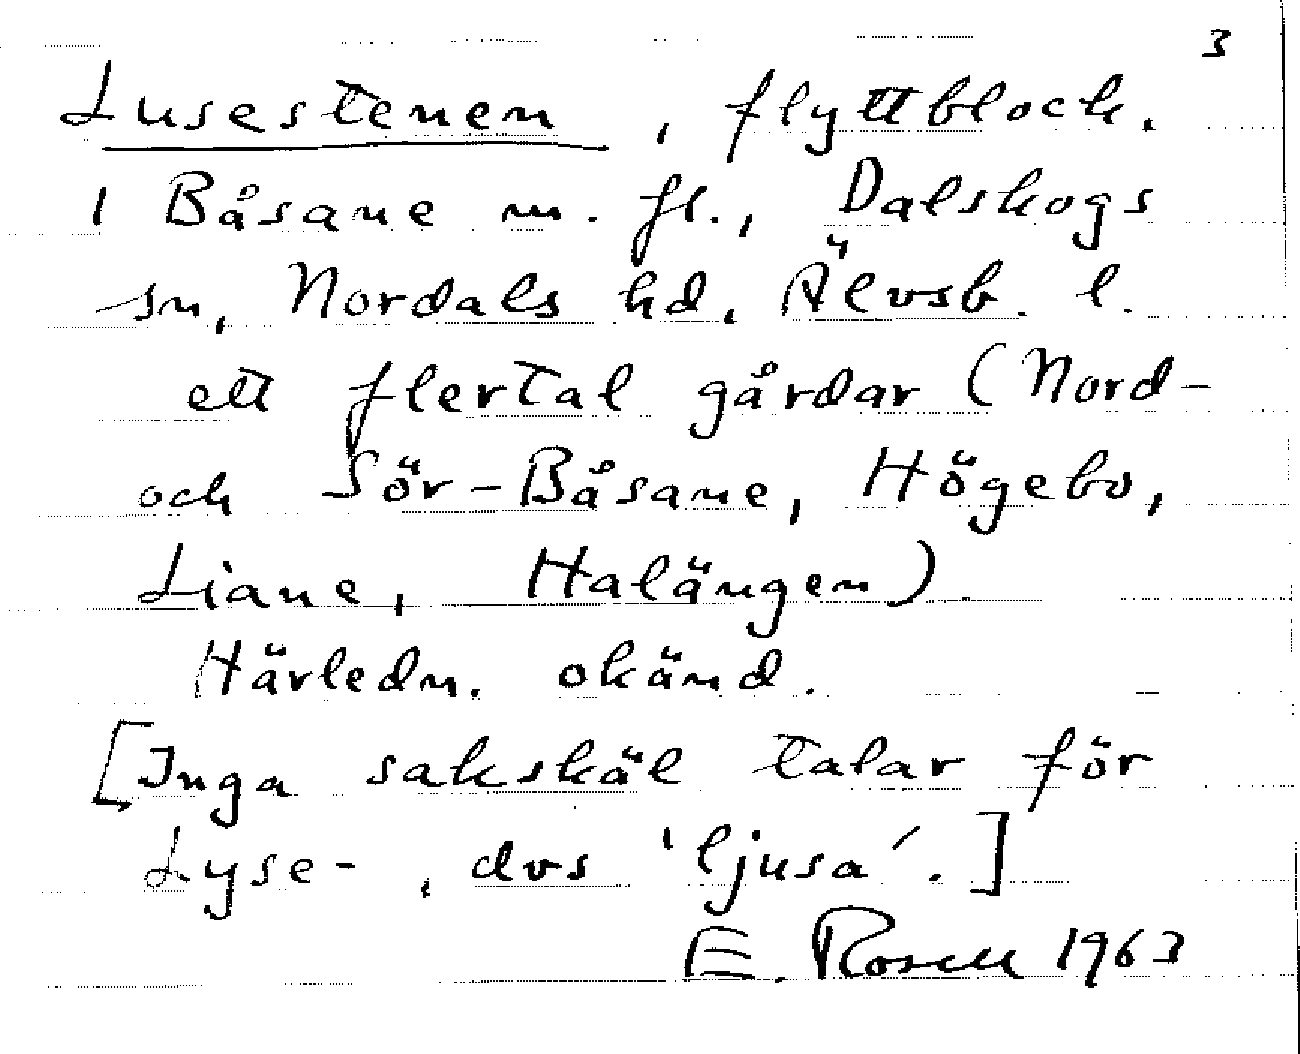 3
Lusestenen, flyttblock.
I Båsane m. fl., Dalskogs
sn, Nordals hd, Älvsb. l.
ett flertal gårdar (Nord-
och Sör-Båsane, Högebo,
Liane, Halängen)
Härledn. okänd.
[Inga sakskäl talar för
Lyse-, dvs 'ljusa'.]
E. Rosell 1963